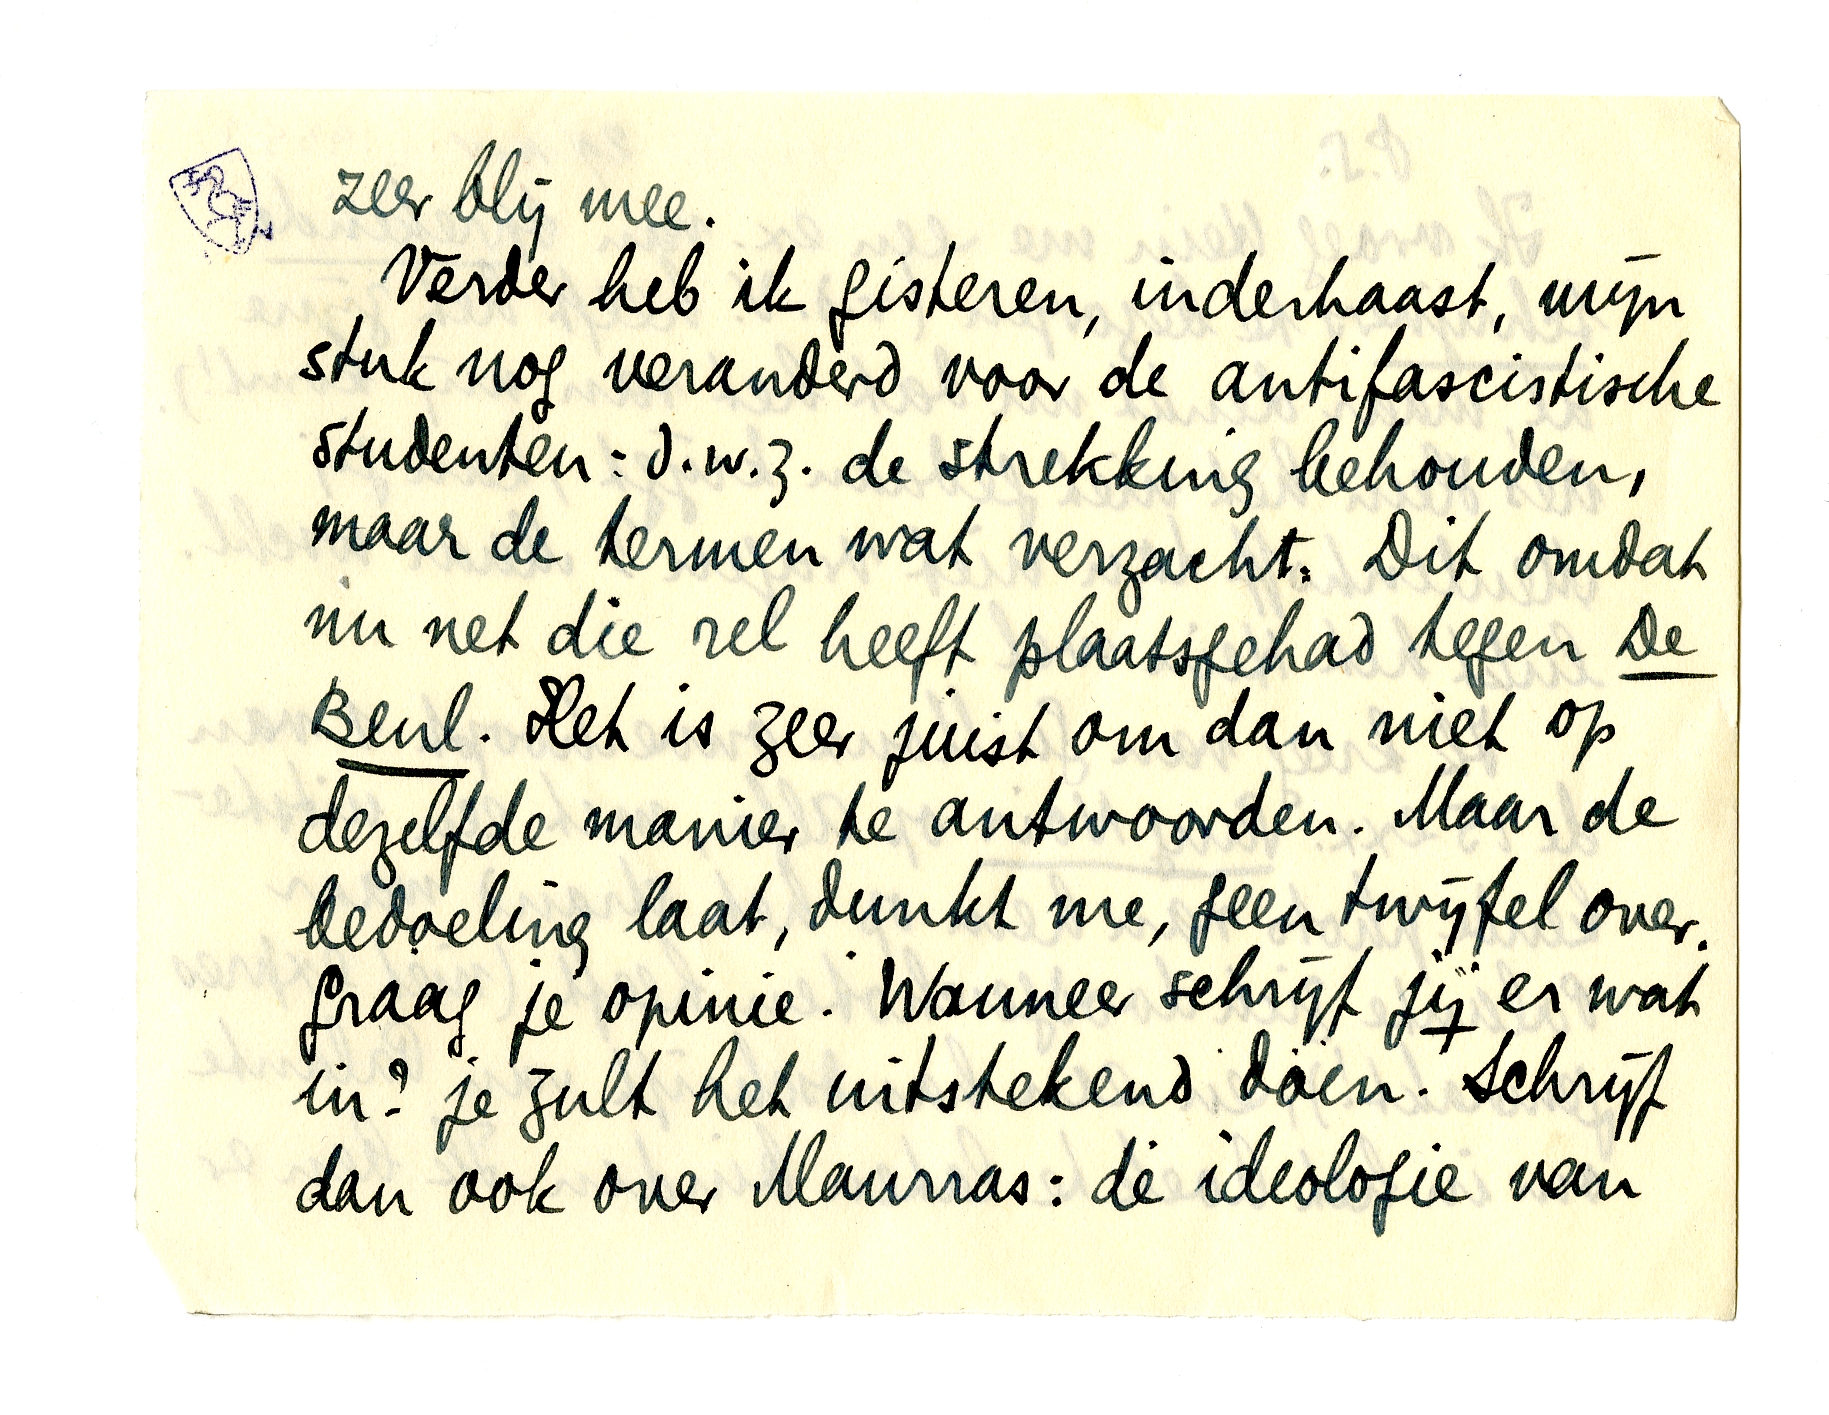 zeer blij mee.
Verder heb ik gisteren, inderhaast, mijn
stuk nog veranderd voor de antifascistische
studenten: d.w.z. de strekking behouden,
maar de termen wat verzacht. Dit omdat
nu net die rel heeft plaatsgehad tegen De
Beul. Het is zeer juist om dan niet op
dezelfde manier te antwoorden. Maar de
bedoeling laat, dunkt me, geen twijfel over.
Graag je opinie. Wanneer schrijf jij er wat
in? Je zult het uitstekend doen. Schrijf
dan ook over Maurras: de ideologie van